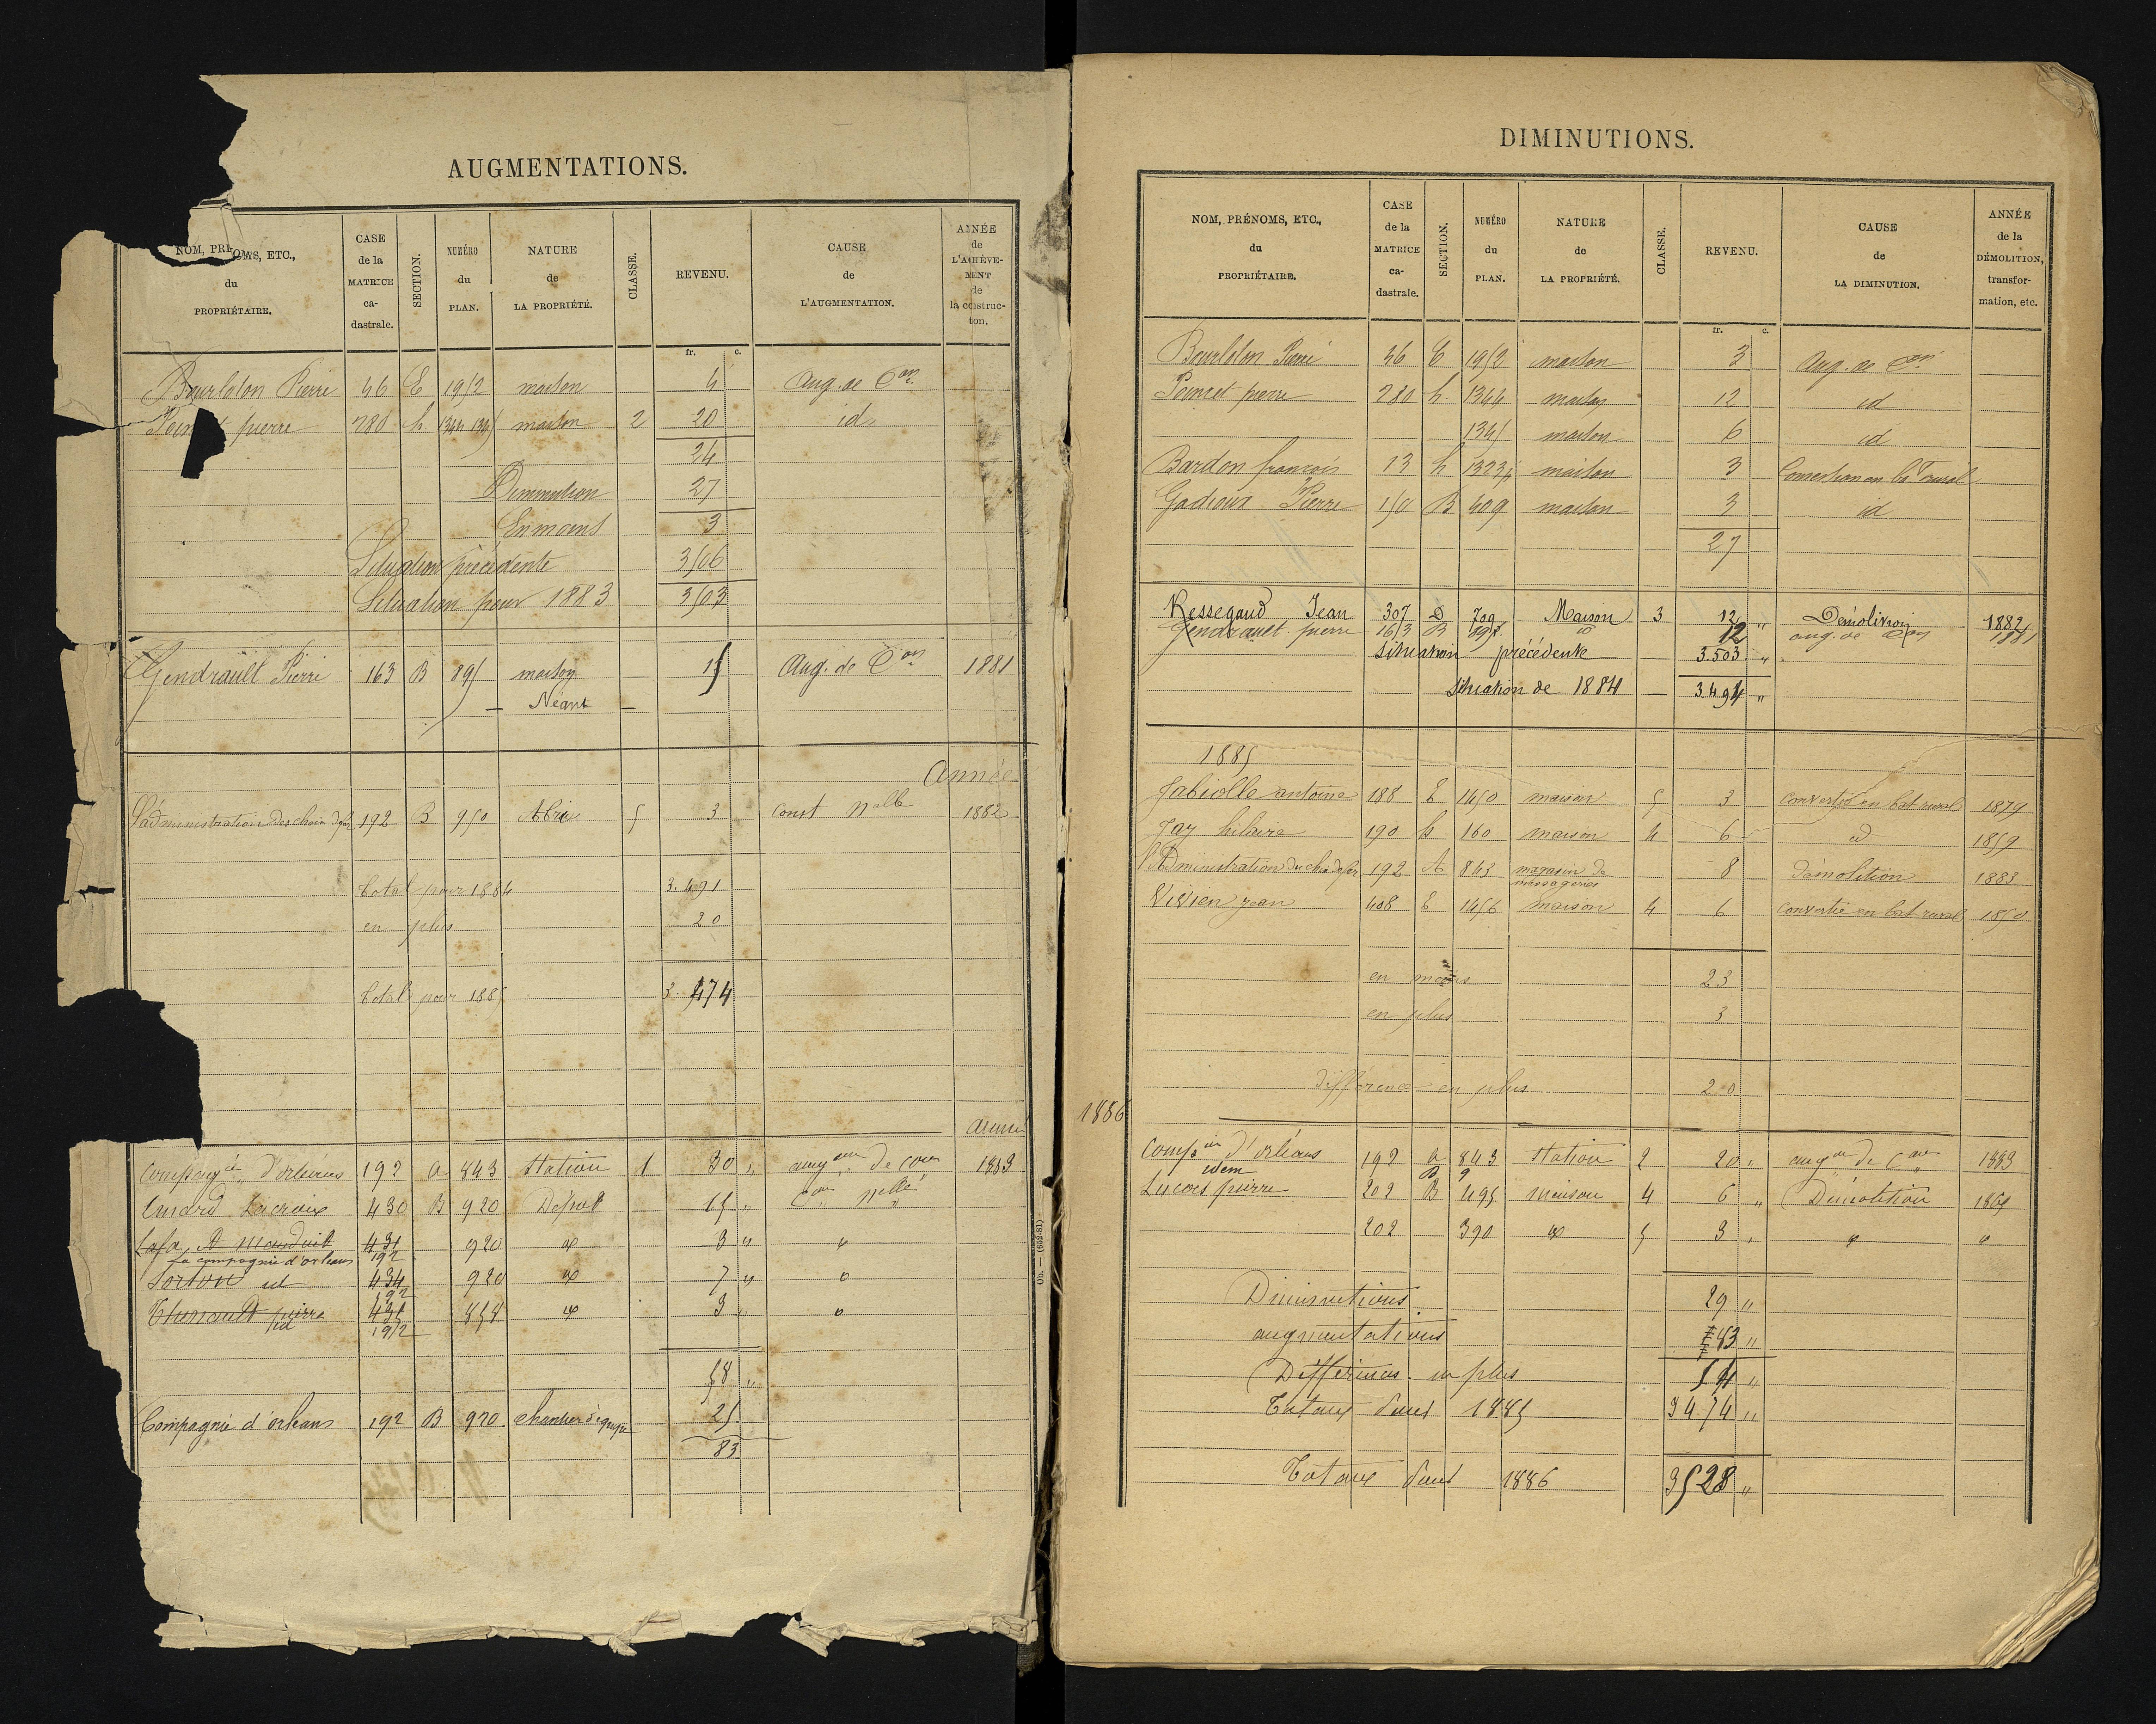 AUGMENTATIONS.
NOM, PRÉNOMS, ETC., du PROPRIÉTAIRE.
CASE de la MATRICE ca-dastrale.
SECTION.
NUMÉRO du PLAN.
NATURE de LA PROPRIÉTÉ.
CLASSE.
REVENU.
CAUSE de L'AUGMENTATION.
ANNÉE de L'ACHÈVE-MENT de la construc-ton.
fr. c.
Bourloton Pierre 46 E 1952 maison 4 Aug. de Con
pierre 280 h 1344 1345 maison 2 20 id
24
Diminution 27
En moins 3
Situation précédente 3506
Situation pour 1883 3503
Gendrault Pierre 163 B 895 maison 15 Aug. de Con 1881
Néant
Année
L'administration des chem de fer 192 B 950 Abri 5 3 Const nelle 1882
total pour 1884 3.491
en plus 20
total pour 1885 3.474
année
Compagie d'orléans 192 a 843 Station 1 30 " augon de Con 1883
Lacroix 430 B 920 Dépot 15 " Con nelle
431 920 3 "
La compagnie d'orleans 192
id 434 920 7 "
192
pierre 431 858 3 "
id 192
58 "
Compagnie d'orleans 192 B 920 25
83
Ob. — (652-81)
DIMINUTIONS.
NOM, PRÉNOMS, ETC., du PROPRIÉTAIRE.
CASE de la MATRICE ca-dastrale.
SECTION.
NUMÉRO du PLAN.
NATURE de LA PROPRIÉTÉ.
CLASSE.
REVENU.
CAUSE de LA DIMINUTION.
ANNÉE de la DÉMOLITION, transfor-mation, etc.
fr. c.
Bourloton Pierre 46 E 1952 maison 3 Aug. de Con
Poincet pierre 280 h 1344 maison 12 id
1345 maison 6 id
Bardon francois 13 h 1323 maison 3 Conversion en bt rural
Gadioux Pierre 150 B 409 maison 3 id
27
Ressegand Jean 307 D 709 Maison 3 12 " Démolition 1882
Gendrault pierre 163 B 895 id 12 aug. de Con 1881
Situation précédente 3.503 "
Situation de 1884 3.491 "
1885
Fabiolle antoine 188 E 1450 maison 5 3 convertie en bat rural 1879
Jay hilaire 190 h 160 maison 4 6 id 1859
l'Administration du chm de fer 192 A 843 magasin de messageries 8 démolition 1883
Vivien jean 408 E 1456 maison 4 6 convertie en bat rural 1850
en moins 23
en plus 3
différence en plus 20
1886
Compie d'orléans 192 a 843 station 2 20 " augon de Con 1883
idem B 9
Lucas pierre 202 B 495 maison 4 6 " Démolition 1865
202 390 5 3 "
Diminutions 29 "
augmentations 83 "
Différence en plus 54 "
Totaux pour 1885 3474 "
Totaux pour 1886 3528 "